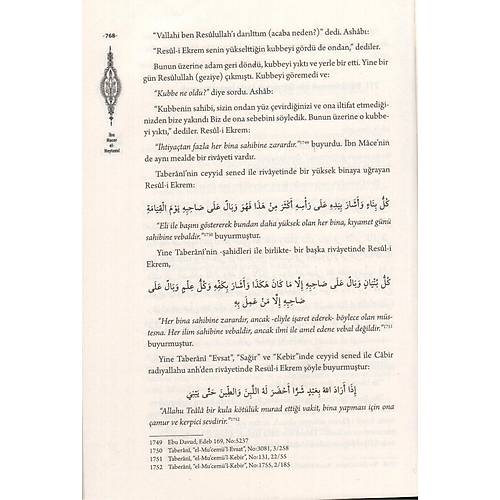 -768-
İbn
Hacer
el-
Heytemî
"Vallahi ben Resûlullah'ı darılttım (acaba neden?)" dedi. Ashâbı:
"Resûl-i Ekrem senin yükselttiğin kubbeyi gördü de ondan," dediler.
Bunun üzerine adam geri döndü, kubbeyi yıktı ve yerle bir etti. Yine bir
gün Resûlullah (geziye) çıkmıştı. Kubbeyi göremedi ve:
"Kubbe ne oldu?" diye sordu. Ashâb:
"Kubbenin sahibi, sizin ondan yüz çevirdiğinizi ve ona iltifat etmediği-
nizden bize yakındı Biz de ona sebebini söyledik. Bunun üzerine o kubbe-
yi yıktı," dediler. Resûl-i Ekrem:
"İhtiyaçtan fazla her bina sahibine zarardır."1749 buyurdu. İbn Mâce'nin
de aynı mealde bir rivâyeti vardır.
Taberânî'nin ceyyid sened ile rivâyetinde bir yüksek binaya uğrayan
Resûl-i Ekrem:
كُلُّ بِنَاءٍ وَأَشَارَ بِيَدِهِ عَلَى رَأْسِهِ أَكْثَرَ مِنْ هَذَا فَهُوَ وَبَالٌ عَلَى صَاحِبِهِ يَوْمَ الْقِيَامَةِ
"Eli ile başını göstererek bundan daha yüksek olan her bina, kıyamet günü
sahibine vebaldir."1750 buyurmuştur.
Yine Taberânî'nin -şahidleri ile birlikte- bir başka rivâyetinde Resûl-i
Ekrem,
كُلُّ بُنْيَانٍ وَبَالٌ عَلَى صَاحِبِهِ إِلَّا مَا كَانَ هَكَذَا وَأَشَارَ بِكَفِّهِ وَكُلُّ عِلْمٍ وَبَالٌ عَلَى
صَاحِبِهِ إِلَّا مَنْ عَمِلَ بِهِ
"Her bina sahibine zarardır, ancak -eliyle işaret ederek- böylece olan müs-
tesna. Her ilim sahibine vebaldir, ancak ilmi ile amel edene vebal değildir."1751
buyurmuştur.
Yine Taberânî "Evsat", "Sağîr" ve "Kebîr"inde ceyyid sened ile Câbir
radıyallahu anh'den rivâyetinde Resûl-i Ekrem şöyle buyurmuştur:
إِذَا أَرَادَ اللهُ بِعَبْدٍ شَرًّا أَخْضَرَ لَهُ اللَّبِنَ وَالطِّينَ حَتَّى يَبْنِيَ
"Allahu Teâlâ bir kula kötülük murad ettiği vakit, bina yapması için ona
çamur ve kerpici sevdirir."1752
1749 Ebu Davud, Edeb 169, No:5237
1750 Taberânî, "el-Mu'cemü'l-Evsat", No:3081, 3/258
1751 Taberânî, "el-Mu'cemü'l-Kebîr", No:131, 22/55
1752 Taberânî, "el-Mu'cemü'l-Kebîr", No:1755, 2/185